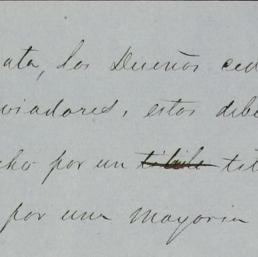 ata, los Dueños ced
viadores, estos debe
cho por un tit
por una mayoria